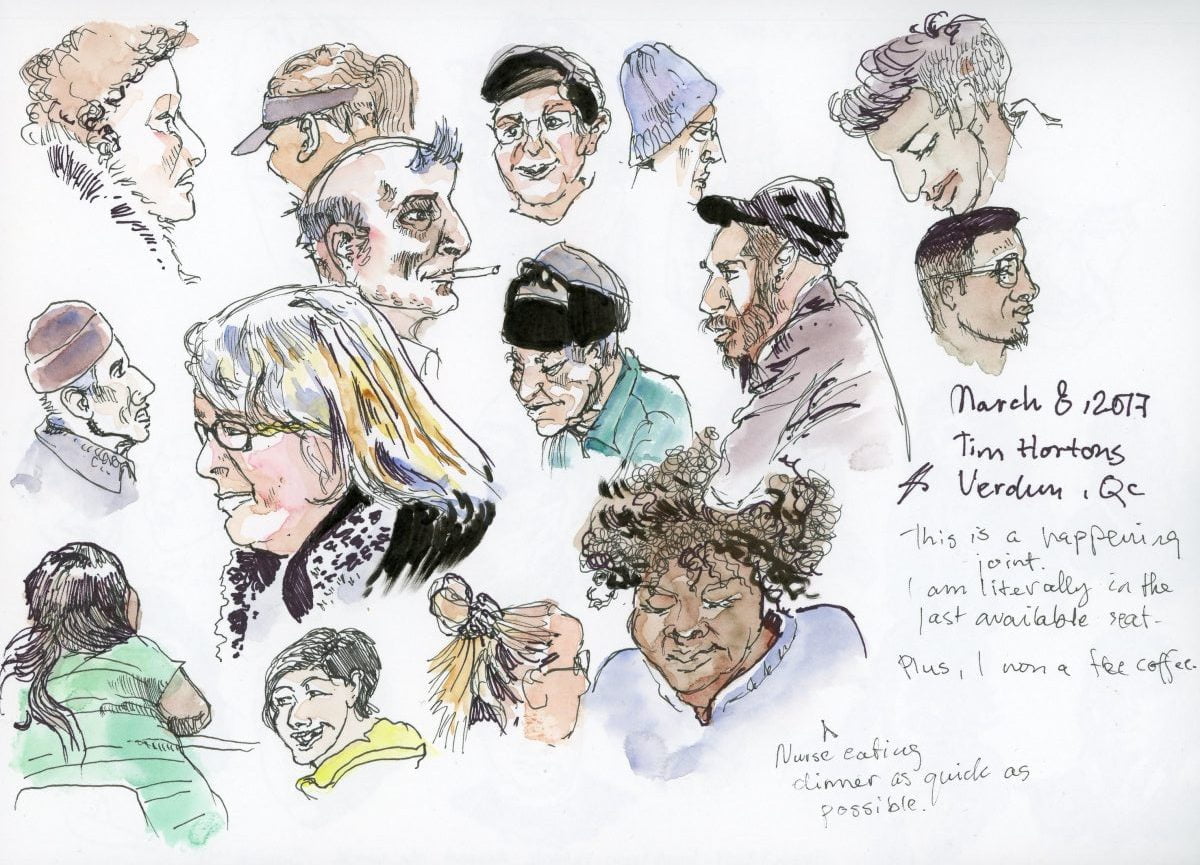 March 8, 2017
Tim Hortons
Verdun, Qc
This is a happening
joint.
I am literally in the
last available seat-
Plus, I won a free coffee.
Nurse eating
dinner as quick as
possible.